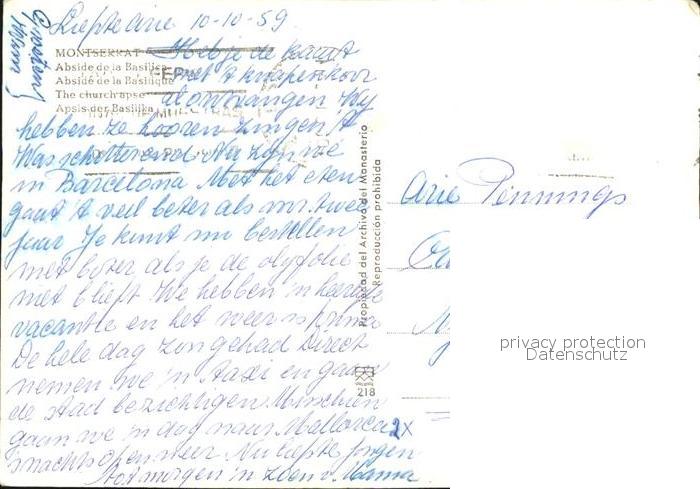 Liefste Arie 10-10-59.
Groetjes
MONTSERRAT
Abside de la Basílica
Abside de la Basilique
The church apse
Apsis der Basilika
Heb je de kaart
met 't knapenkoor
al ontvangen Wij
hebben ze hooren zingen 't
Was schitterend. Nu zijn we
in Barcelona Met het eten
gaat 't veel beter als twee
jaar Je kunt nu bestellen
met boter als je de olijfolie
niet blieft We hebben 'n
vacantie en het weer is prima
De hele dag zon gehad Direct
nemen we 'n Taxi en gaan
de stad bezichtigen Misschien
gaan we 'n dag naar Mallorca 2x
snachts open weer. Nu liefste jongen
Tot morgen 'n zoen v. Mama
Propiedad del Archivo del Monasterio
Reproducción prohibida
218
Arie Pennings
privacy protection
Datenschutz